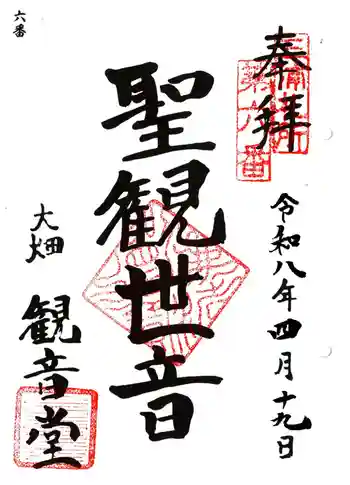 六番
奉拝
第六番
令和八年四月十九日
聖観世音
大畑
観音堂